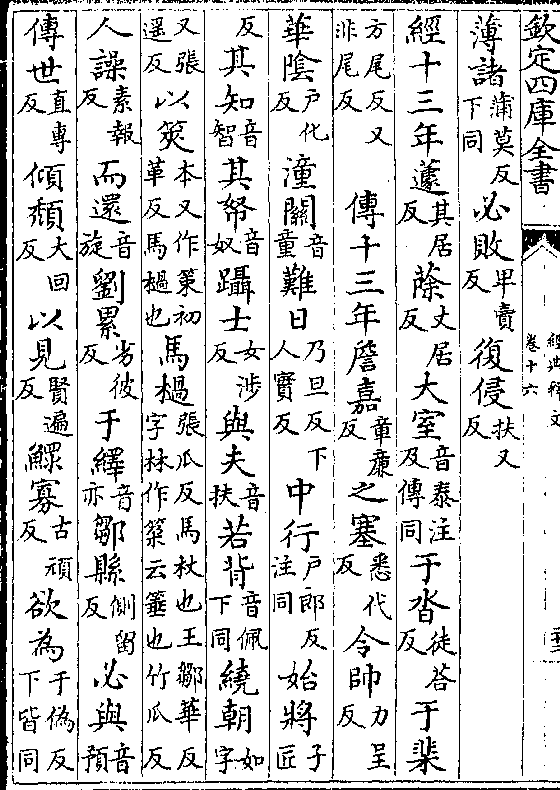 欽定四庫全書
經典釋文
卷十六
薄諸蒲莫反下同必敗卑賣反復侵扶又反
經十三年蘧其居反蒢丈居反大室音泰注及傳同于沓徒荅反于棐
方尾反又非尾反傳十三年詹嘉章廉反之塞悉代反令帥力呈反
華陰户化反潼關音童難日乃旦反下人實反中行户郎反注同始將子匠
反其知音智其帑音奴躡士女涉反與夫音扶若背音佩下同繞朝如字
又張遥反以筴本又作策初革反馬檛也馬檛張瓜反馬杖也王鄒華反字林作築云箠也竹瓜反
人譟素報反而還音旋劉累劣彼反于繹音亦鄒縣側留反必與音預
傳世直專反傾頹大回反以見賢遍反鰥寡古頑反欲為于偽反下皆同